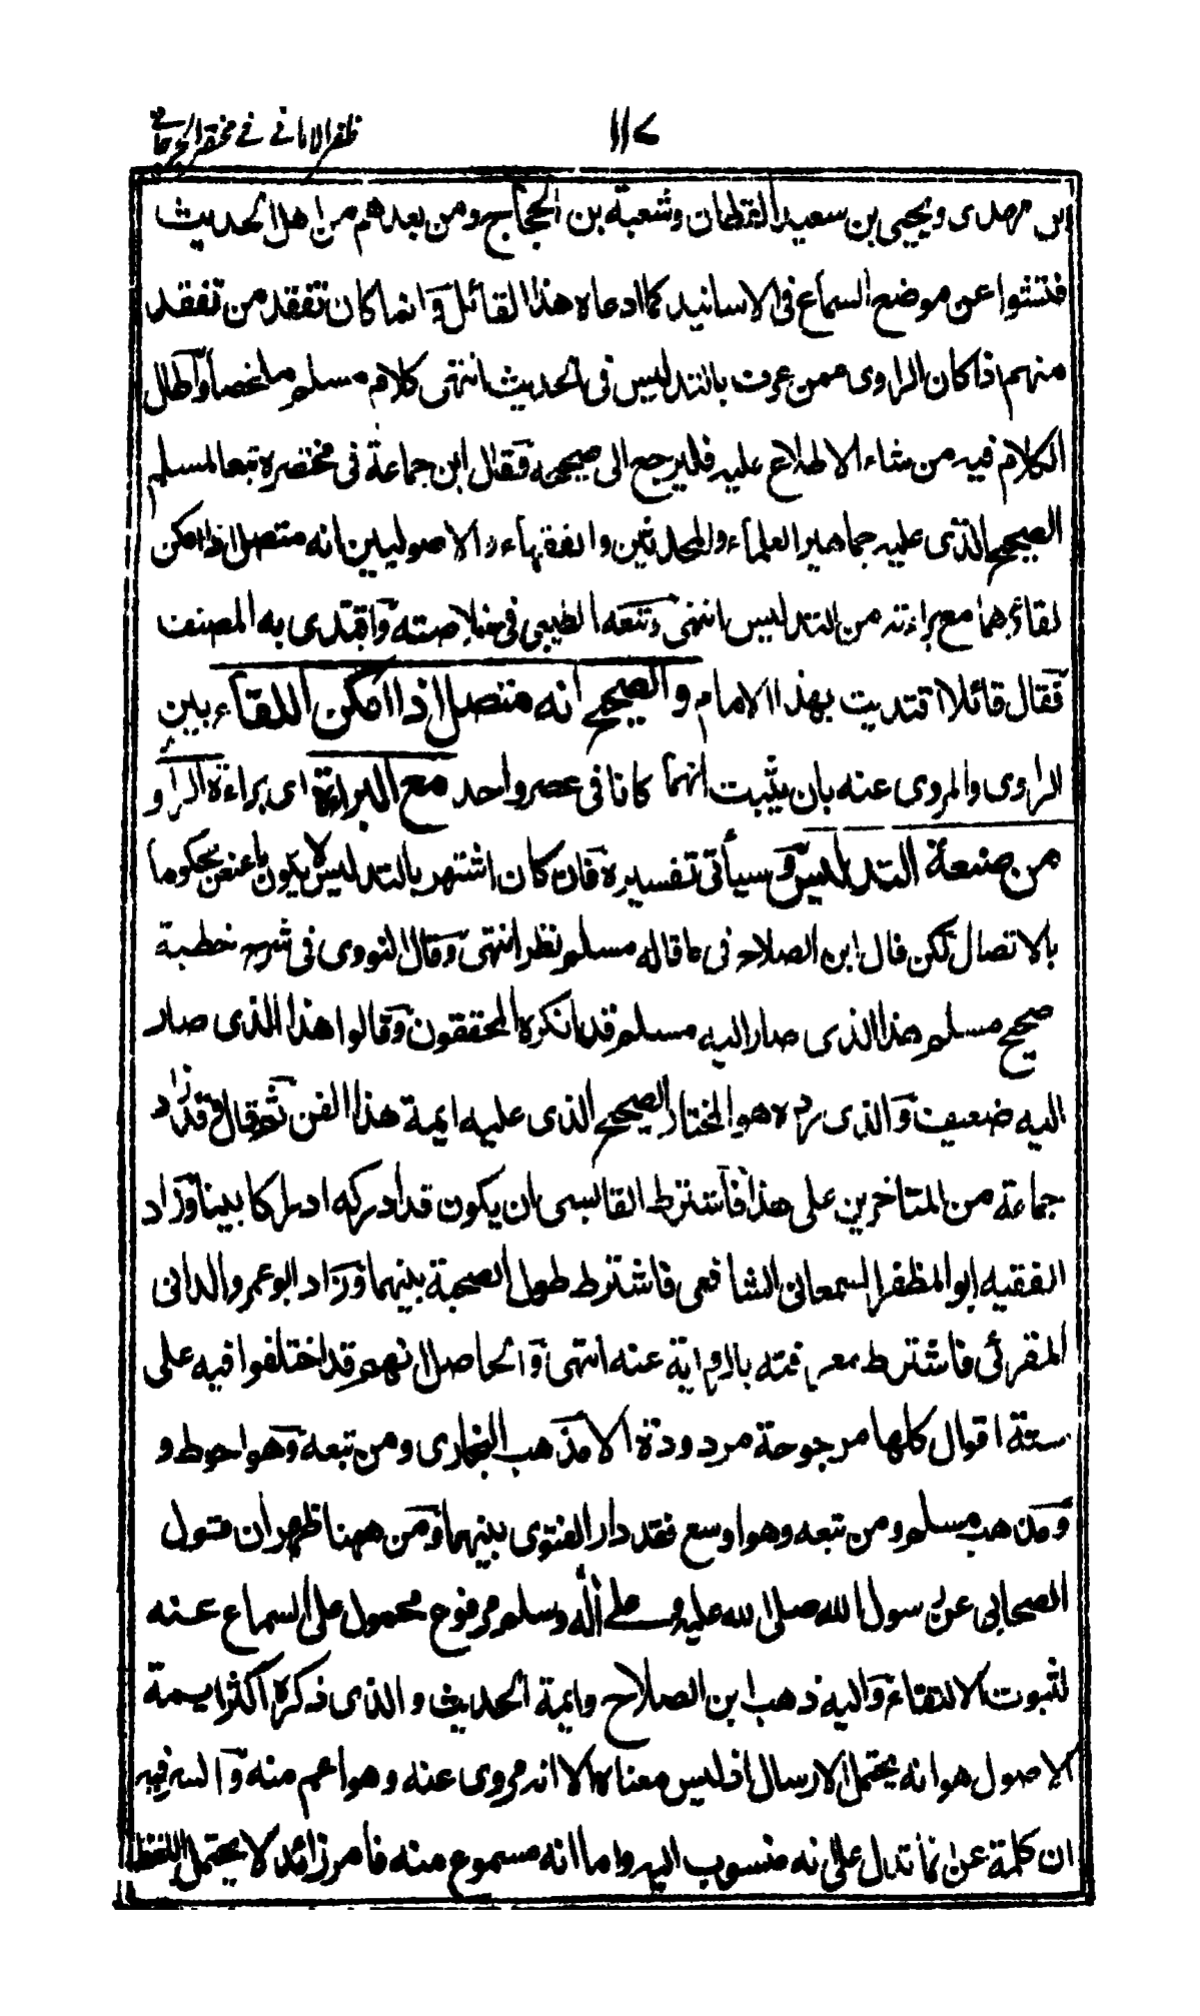 ١١٧ ظفر الامانى فى مختصر الجرجانى
ابن مهدى ويحيى بن سعيد القطان وشعبة بن الحجاج ومن بعدهم من اهل الحديث
فتشوا عن موضع السماع فى الاسانيد كما ادعاه هذا القائل وانما كان تفقد من تفقد
منهم اذا كان الراوى ممن عرف بالتدليس فى الحديث انتهى كلام مسلم ملخصا واطال
الكلام فيه من شاء الاطلاع عليه فليرجع الى صحيحه فقال ابن جماعة فى مختصره تبعا لمسلم
الصحيح الذى عليه جماهير العلماء والمحدثين والفقهاء والاصوليين انه متصل اذا امكن
لقاؤهما مع براءته من التدليس انتهى وتبعه الطيبى فى خلاصته واقتدى به المصنف
فقال قائلا اقتديت بهذا الامام والصحيح انه متصل اذا امكن اللقاء بين
الراوى والمروى عنه بان يثبت انهما كانا فى عصر واحد مع البراءة اى براءة الراو
من صنعة التدليس وسيأتى تفسيره فان كان اشتهر بالتدليس لا يكون ما عنعن محكوما
بالاتصال لكن قال ابن الصلاح فى ما قاله مسلم نظر انتهى وقال النووى فى شرح خطبة
صحيح مسلم هذا الذى صار اليه مسلم قد انكره المحققون وقالوا هذا الذى صار
اليه ضعيف والذى رده هو المختار الصحيح الذى عليه ايمة هذا الفن ثم قال وقد زاد
جماعة من المتاخرين على هذا فاشترط القابسى ان يكون قد ادركه ادراكا بينا وزاد
الفقيه ابو المظفر السمعانى الشافعى فاشترط طول الصحبة بينهما وزاد ابو عمرو الدانى
المقرئى فاشترط معرفته بالرواية عنه انتهى والحاصل انهم قد اختلفوا فيه على
ستة اقوال كلها مرجوحة مردودة الا مذهب البخارى ومن تبعه وهو احوط و
ومذهب مسلم ومن تبعه وهو اوسع فقد دار الفتوى بينهما ومن ههنا ظهر ان قول
الصحابى عن رسول الله صلى الله عليه وعلى آله وسلم مرفوع محمول على السماع عنه
لثبوت الالتقاء واليه ذهب ابن الصلاح وايمة الحديث والذى ذكره اكثر ايمة
الاصول هو انه يحتمل الارسال اذ ليس معناه الا انه مروى عنه وهو اعم منه والسر فيه
ان كلمة عن انما تدل على انه منسوب اليه واما انه مسموع منه فامر زائد لا يحتمل اللفظ